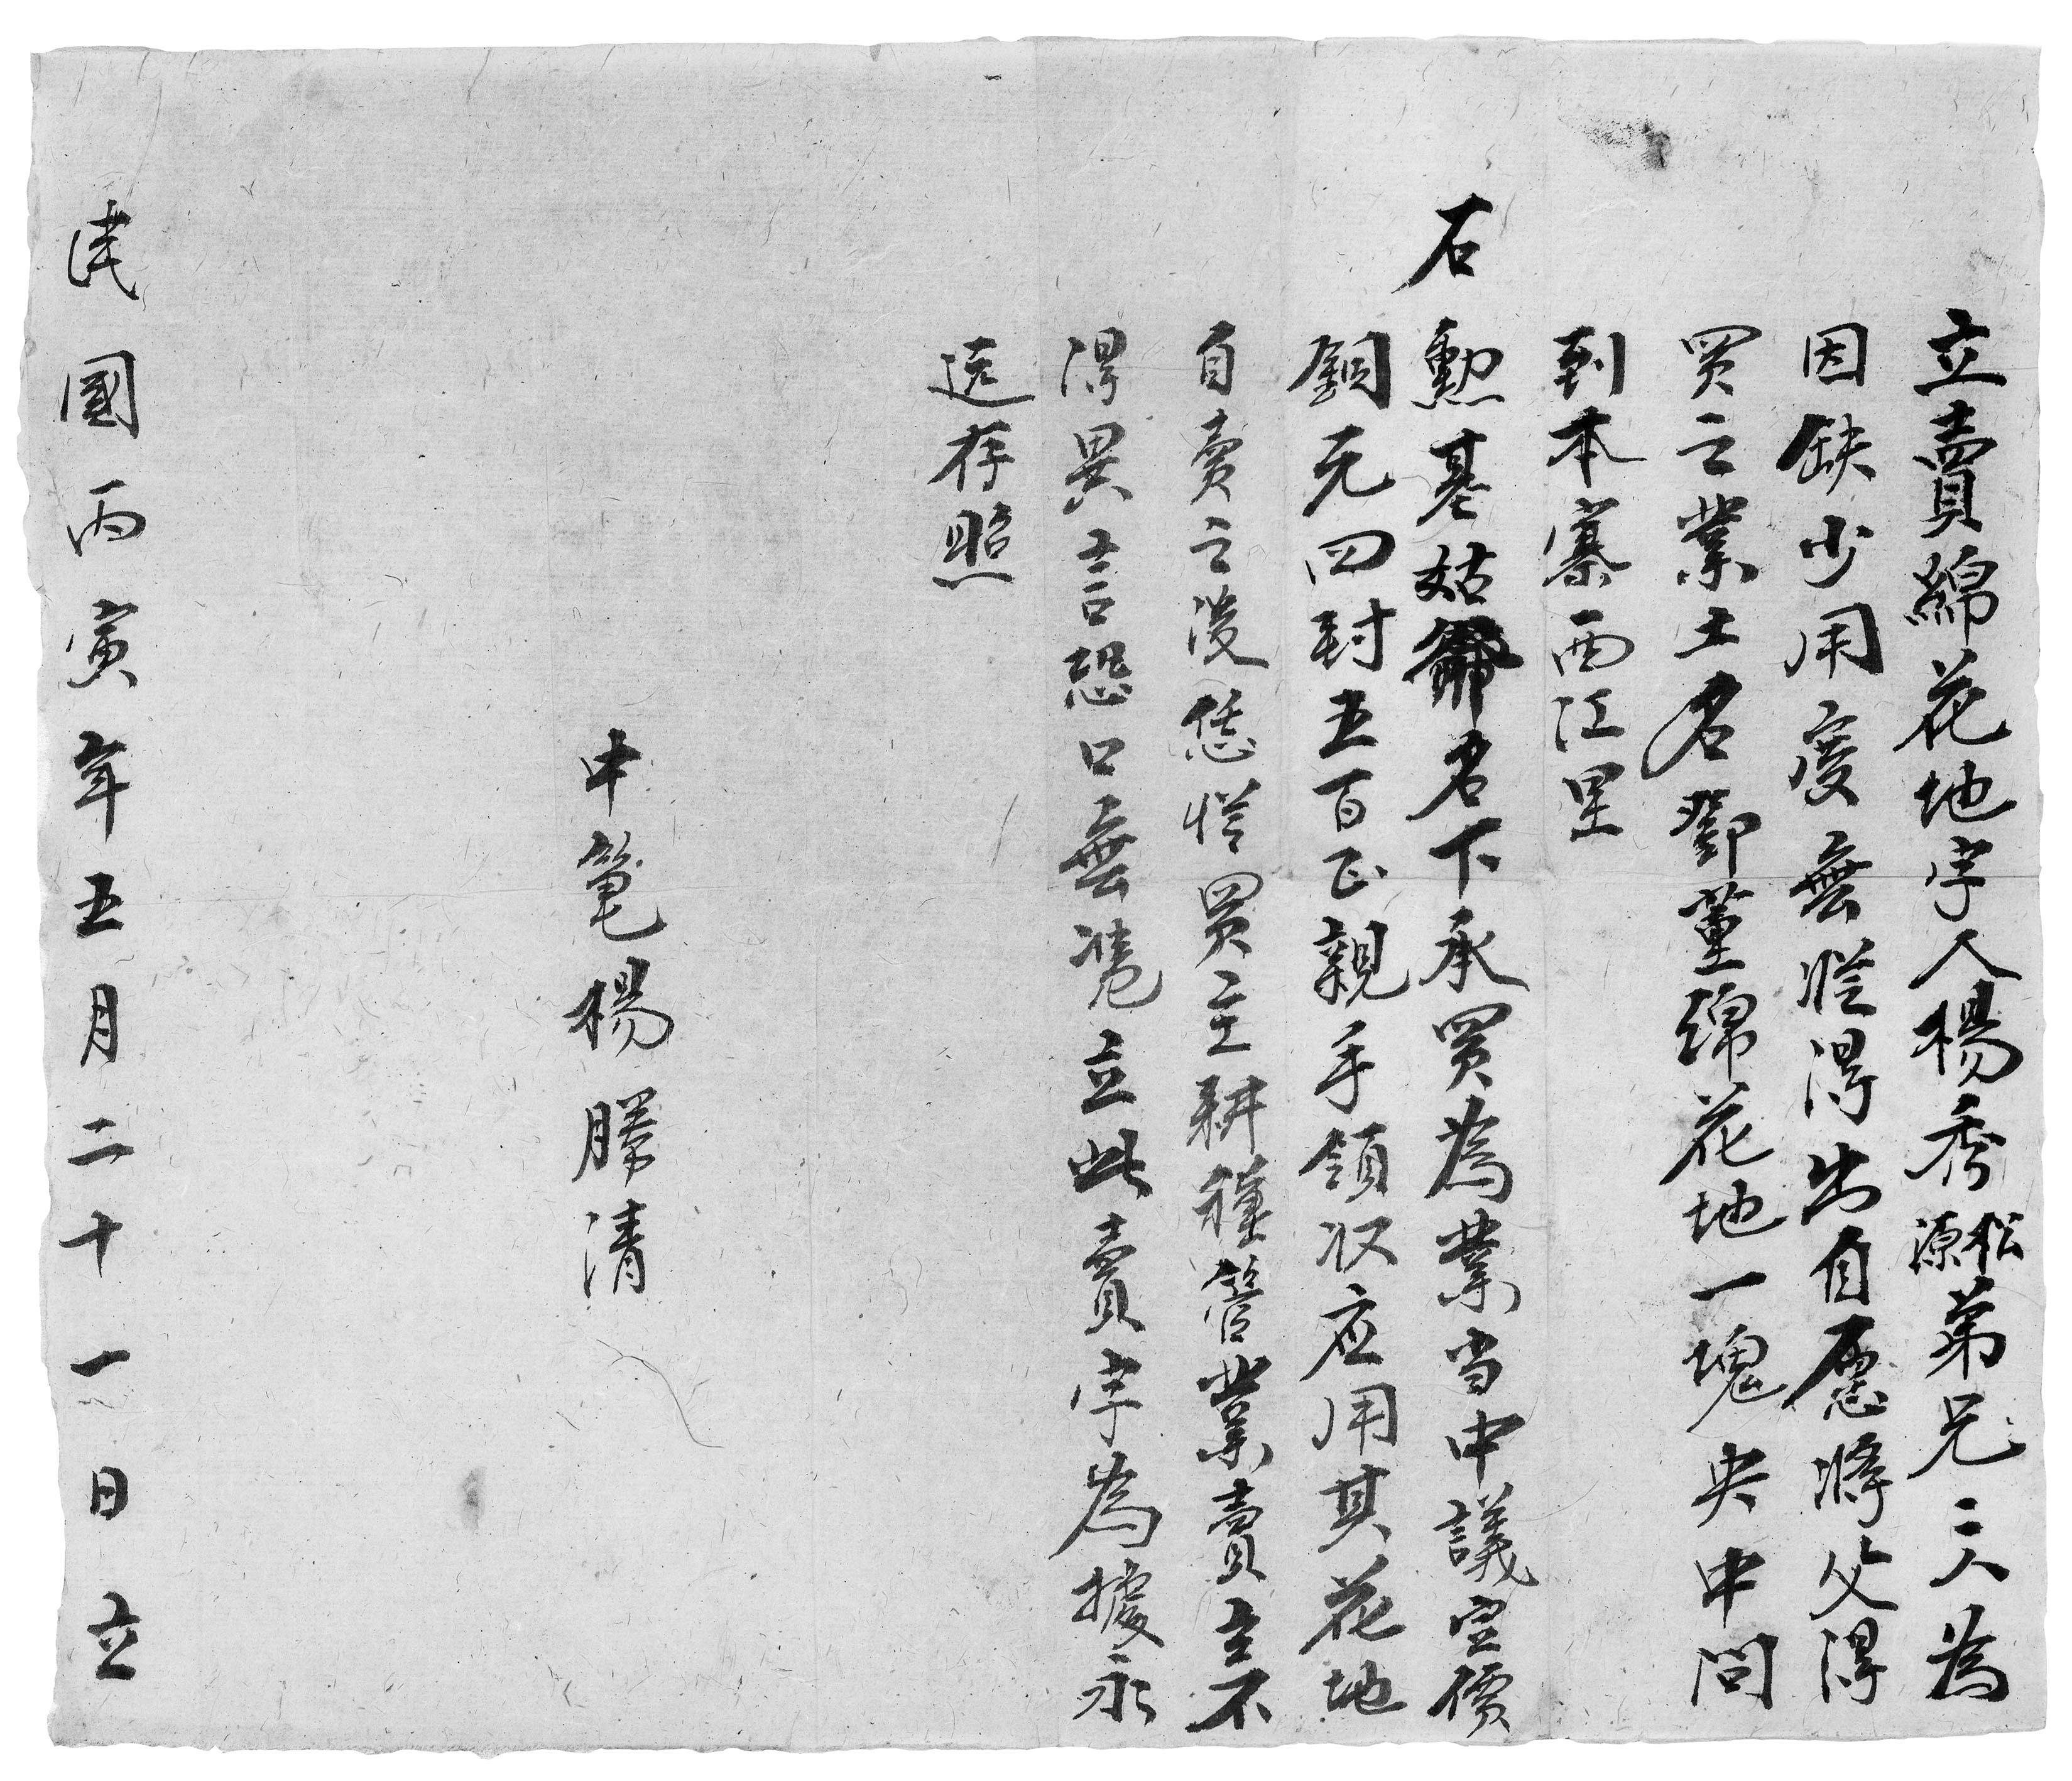 立賣綿花地字人楊秀松源弟兄二人為
因缺少用度無從得出自愿將父得
買之業土名鄧董綿花地一塊央中問
到本寨西江里
石勲基姑爺名下承買為業当中議定價
銅元四封五百正親手領収应用其花地
自賣之後恁從買主耕種管業賣主不
得異言恐口無凴立此賣字為據永
遠存照
中筆楊勝清
民國丙寅年五月二十一日立